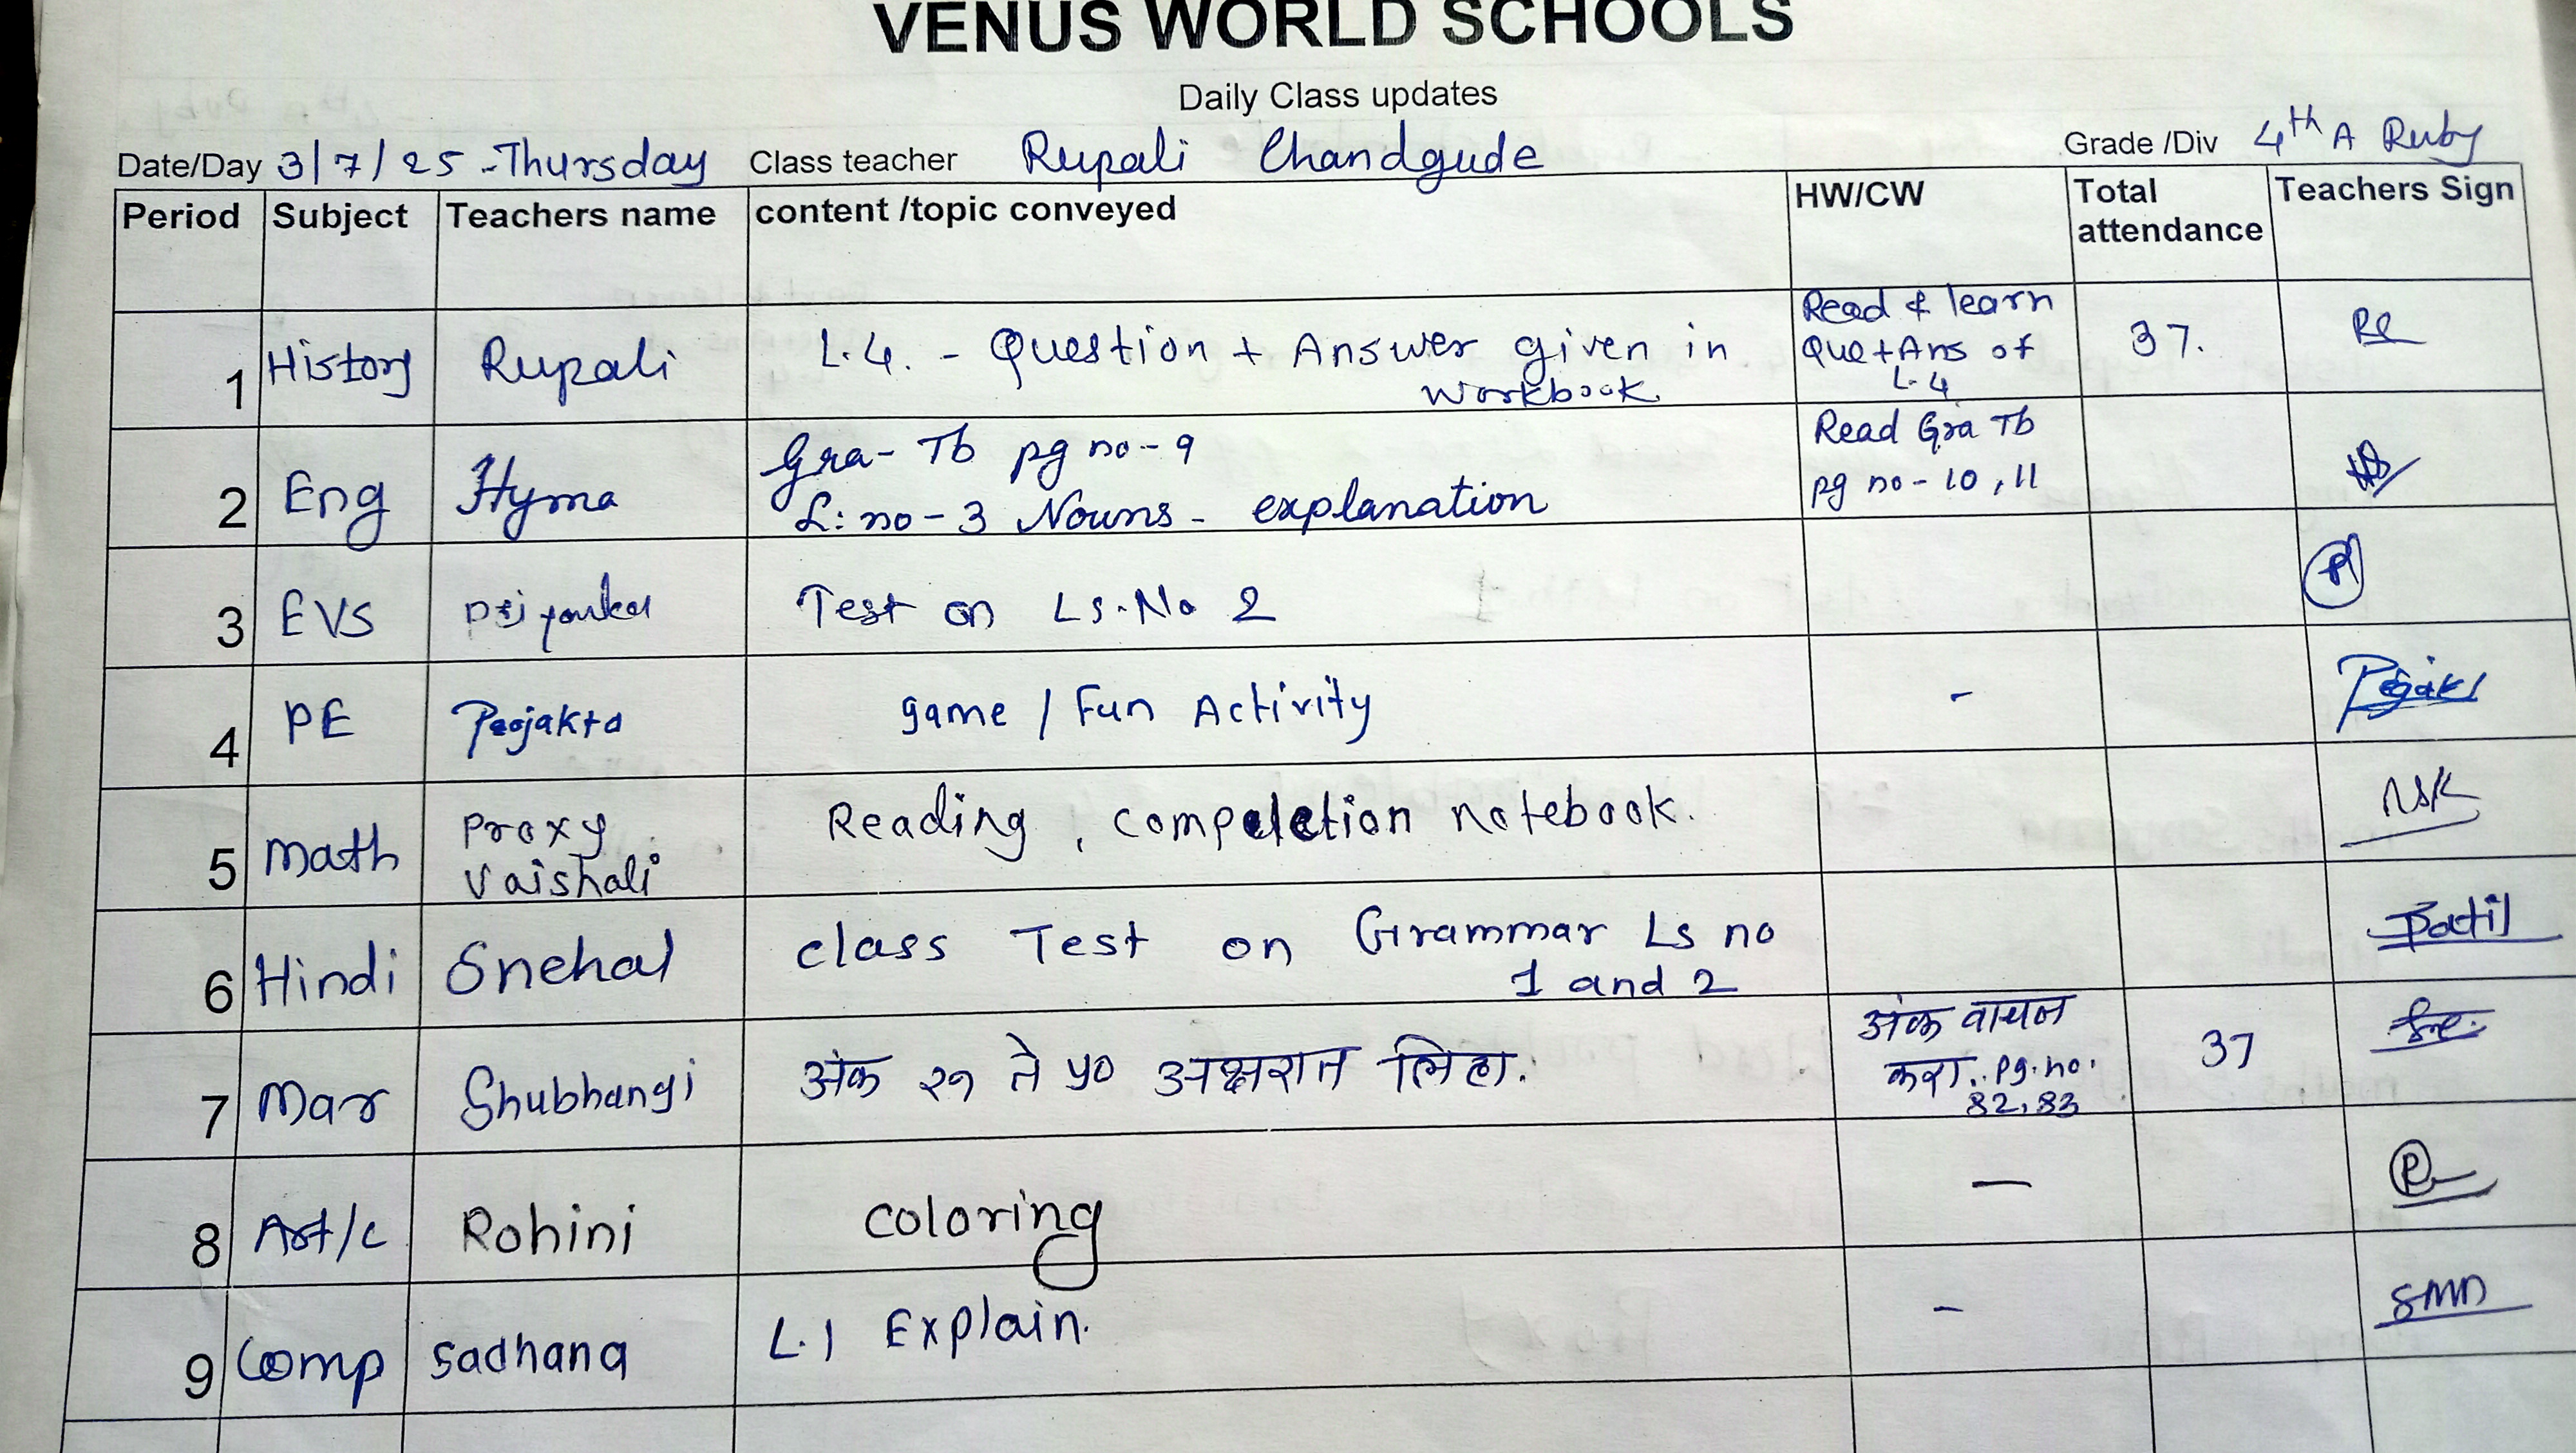 VENUS WORLD SCHOOLS
Daily Class updates
Date/Day 3/7/25 - Thursday Class teacher Rupali Chandgude Grade /Div 4th A Ruby
Period Subject Teachers name content /topic conveyed HW/CW Total attendance Teachers Sign
1 History Rupali L.4. - Question + Answer given in workbook. Read & learn Que+Ans of L.4 37.
2 Eng Hyma Gra- Tb pg no-9 Read Gra Tb
L: no-3 Nouns - explanation pg no-10, 11
3 EVS Priyanka Test on Ls.No 2
4 PE Prajakta game / Fun Activity -
5 Math Proxy Vaishali Reading, compeletion notebook. NSK
6 Hindi Snehal class Test on Grammar Ls no 1 and 2 Patil
7 Mar Shubhangi अंक २१ ते ५० अक्षरात लिहा. अंक वाचन करा. pg.no. 82,83 37
8 Art/c Rohini coloring —
9 Comp Sadhana L.1 Explain. - SMD